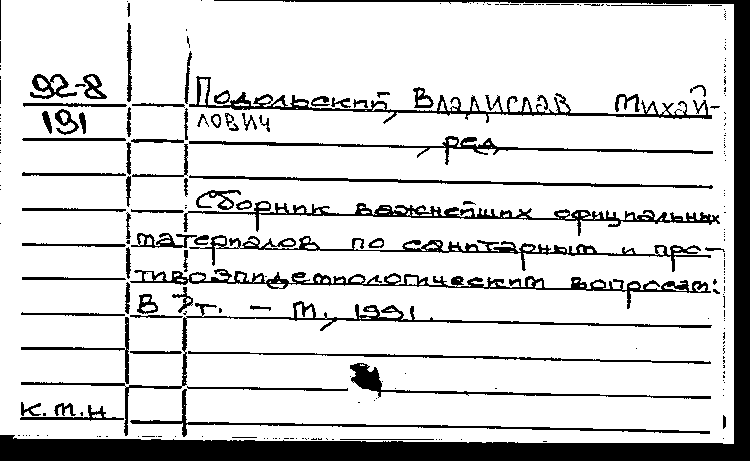 92-8
191
Подольский, Владислав Михай-
лович
, ред.
Сборник важнейших официальных
материалов по санитарным и про-
тивоэпидемиологическим вопросам:
В 7 т. – М., 1991.
к.т.н.